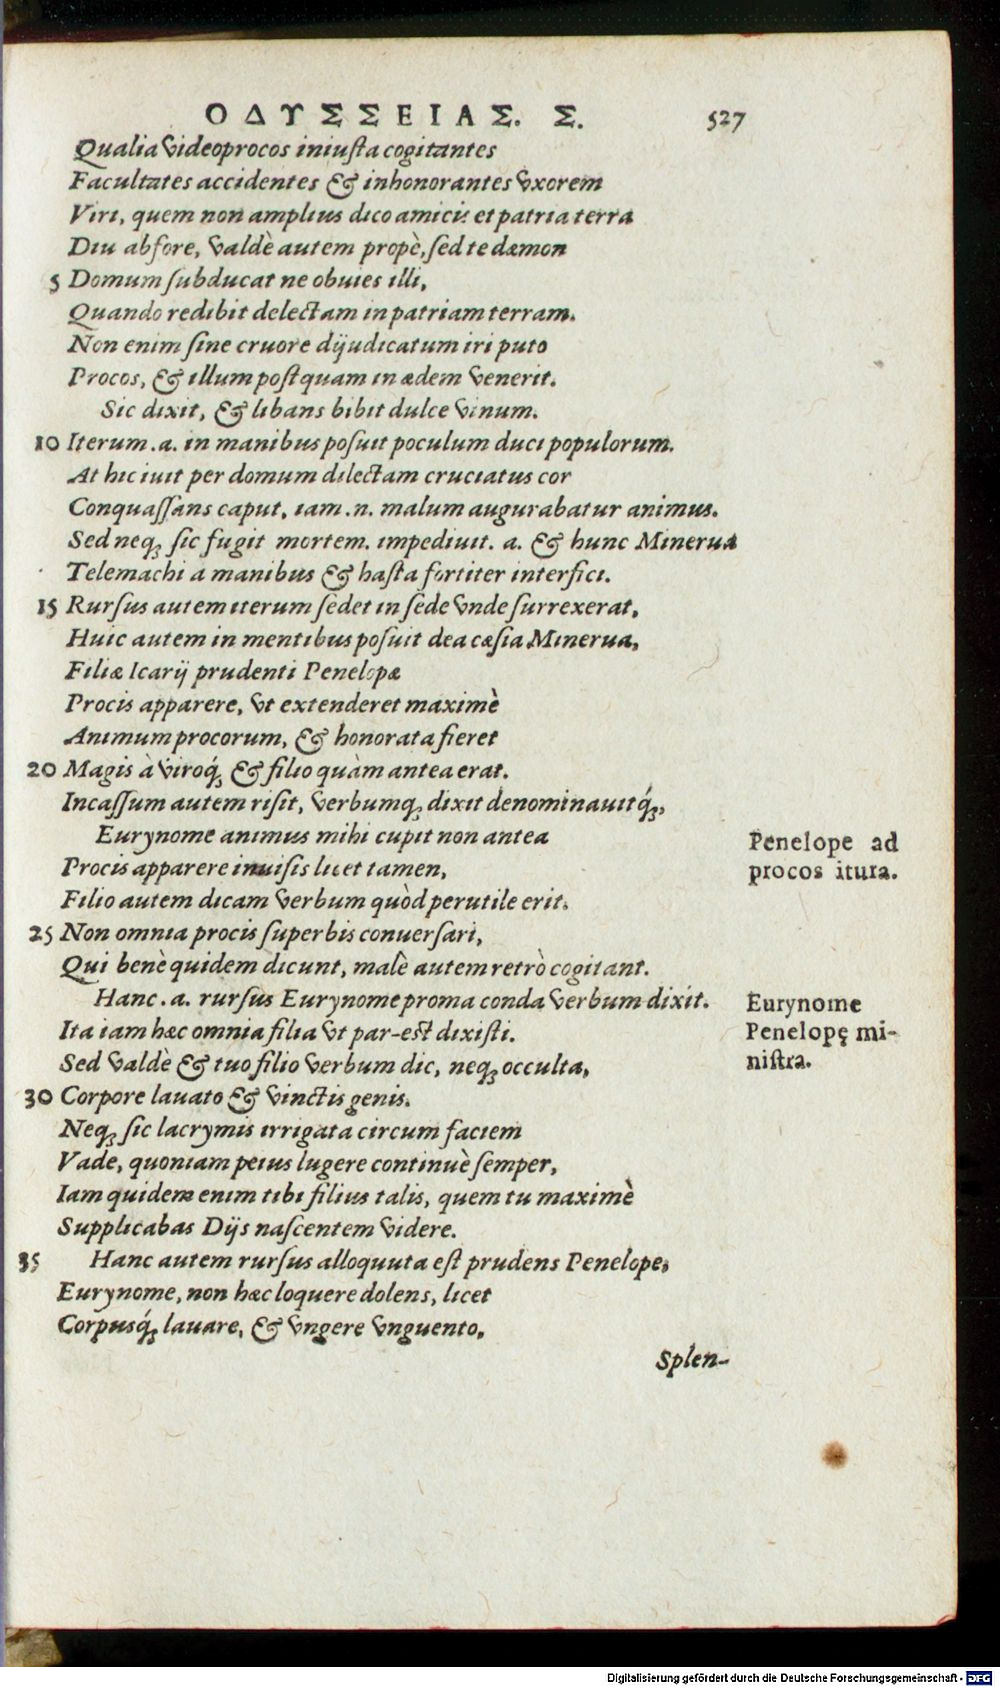 ΟΔΥΣΣΕΙΑΣ. Σ. 527
Qualia video procos iniusta cogitantes
Facultates accidentes & inhonorantes vxorem
Viri, quem non amplius dico amicis et patria terra
Diu abfore, valdè autem propè, sed te dæmon
5 Domum subducat ne obuies illi,
Quando redibit delectam in patriam terram.
Non enim sine cruore dijudicatum iri puto
Procos, & illum postquam in ædem venerit.
Sic dixit, & libans bibit dulce vinum.
10 Iterum .a. in manibus posuit poculum duci populorum.
At hic iuit per domum dilectam cruciatus cor
Conquassans caput, iam .n. malum augurabatur animus.
Sed neq; sic fugit mortem. impediuit. a. & hunc Minerua
Telemachi a manibus & hasta fortiter interfici.
15 Rursus autem iterum sedet in sede vnde surrexerat,
Huic autem in mentibus posuit dea cæsia Minerua,
Filiæ Icarij prudenti Penelopæ
Procis apparere, vt extenderet maximè
Animum procorum, & honorata fieret
20 Magis à viroq́; & filio quàm antea erat.
Incassum autem risit, verbumq; dixit denominauitq́;,
Eurynome animus mihi cupit non antea
Procis apparere inuisis licet tamen,
Filio autem dicam verbum quòd perutile erit.
25 Non omnia procis superbis conuersari,
Qui benè quidem dicunt, malè autem retrò cogitant.
Hanc .a. rursus Eurynome proma conda verbum dixit.
Ita iam hæc omnia filia vt par-est dixisti.
Sed valdè & tuo filio verbum dic, neq; occulta,
30 Corpore lauato & vinctis genis.
Neq; sic lacrymis irrigata circum faciem
Vade, quoniam peius lugere continuè semper,
Iam quidem enim tibi filius talis, quem tu maximè
Supplicabas Dijs nascentem videre.
35 Hanc autem rursus alloquuta est prudens Penelope,
Eurynome, non hæc loquere dolens, licet
Corpusq́; lauare, & vngere vnguento,
Splen-
Penelope ad
procos itura.
Eurynome
Penelopę mi-
nistra.
Digitalisierung gefördert durch die Deutsche Forschungsgemeinschaft - DFG